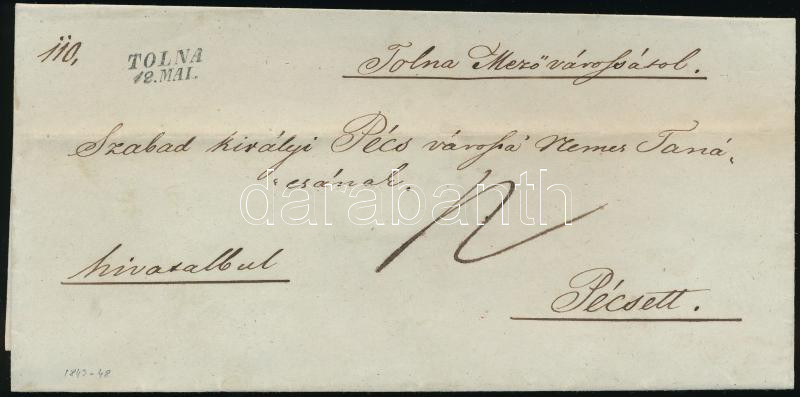 110,
TOLNA
12. MAI.
Tolna Mező városságtol.
Szabad királyi Pécs várossa Nemes Taná,
csának.
darabanth
12
hivatalbul
Pécsett.
1843-48